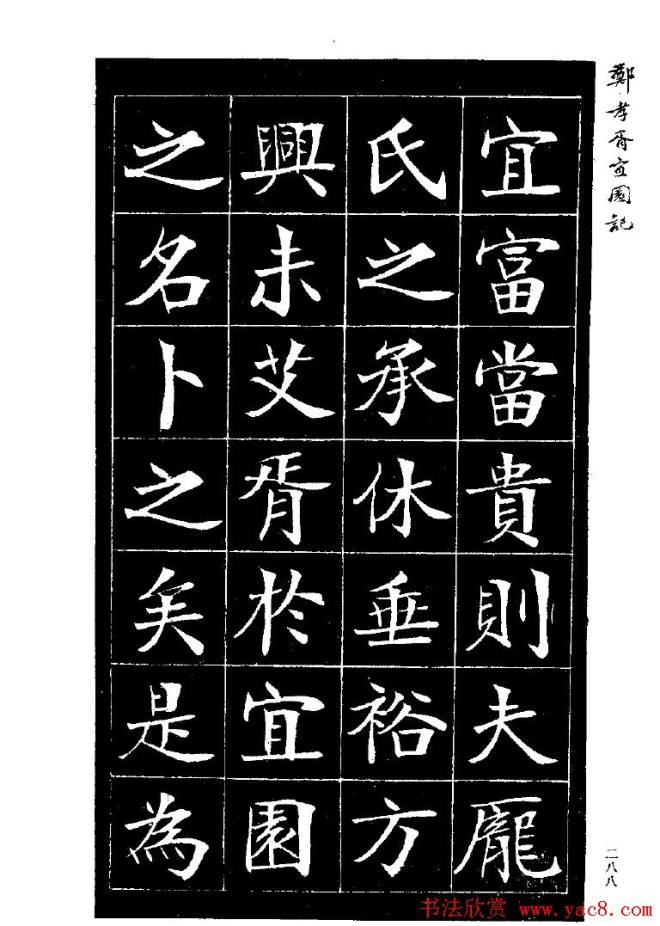 鄭孝胥宜園記
宜富當貴則夫龐
氏之承休垂裕方
興未艾胥於宜園
之名卜之矣是為
二八八
书法欣赏 www.yac8.com